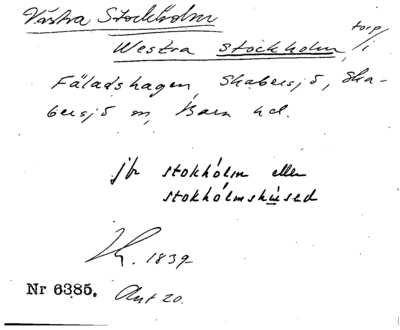 Västra Stockholm
Westra Stockholm, torp i
Fäladshagen, Skabersjö, Ska-
bersjö sn, Bara hd.
jfr stokhólm eller
stokhólmshused
1839
Nr 6385. Ant 20.